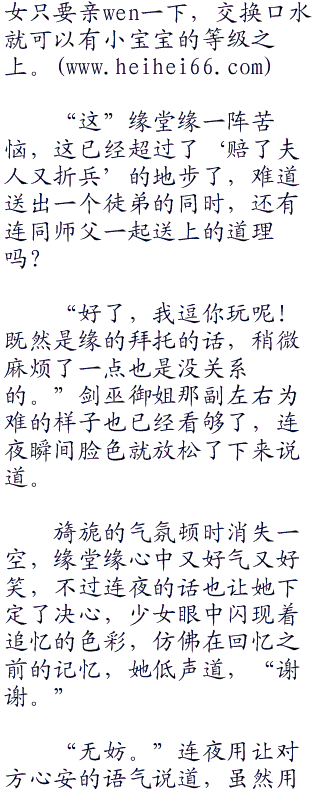 女只要亲wen一下，交换口水
就可以有小宝宝的等级之
上。(www.heihei66.com)
“这”缘堂缘一阵苦
恼，这已经超过了‘赔了夫
人又折兵’的地步了，难道
送出一个徒弟的同时，还有
连同师父一起送上的道理
吗？
“好了，我逗你玩呢！
既然是缘的拜托的话，稍微
麻烦了一点也是没关系
的。”剑巫御姐那副左右为
难的样子也已经看够了，连
夜瞬间脸色就放松了下来说
道。
旖旎的气氛顿时消失一
空，缘堂缘心中又好气又好
笑，不过连夜的话也让她下
定了决心，少女眼中闪现着
追忆的色彩，仿佛在回忆之
前的记忆，她低声道，“谢
谢。”
“无妨。”连夜用让对
方心安的语气说道，虽然用